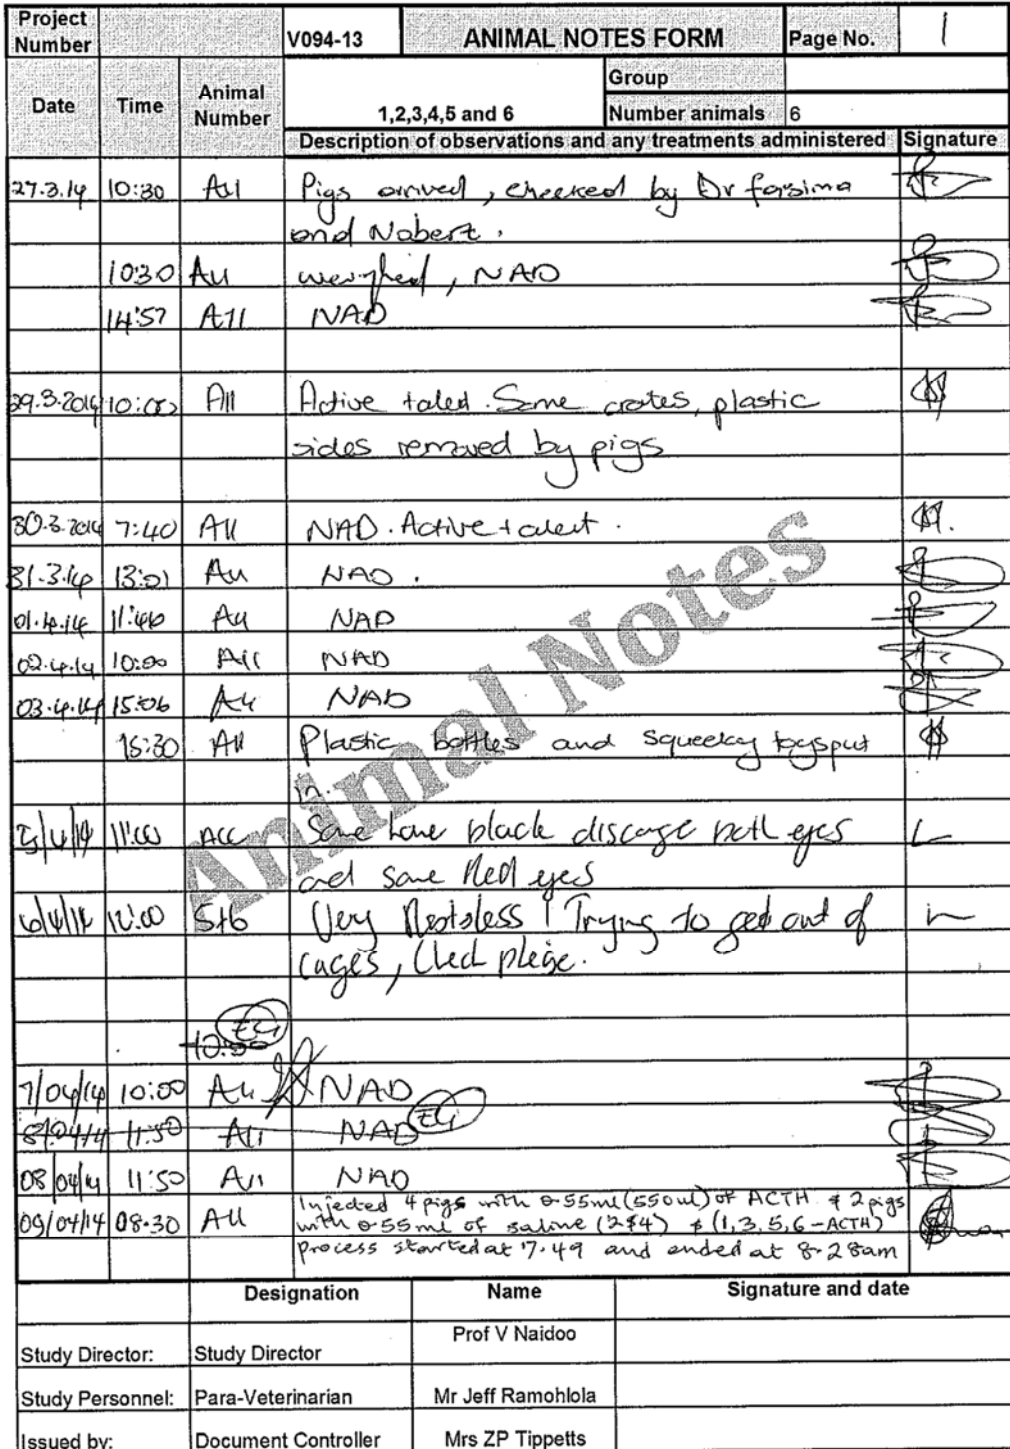 Project Number V094-13 ANIMAL NOTES FORM Page No. 1
Date Time Animal Number 1,2,3,4,5 and 6 Group
Number animals 6
Description of observations and any treatments administered Signature
27.3.14 10:30 All Pigs arrived, checked by Dr
and Nobert.
10:30 All weighed, NAD
14:57 All NAD
29.3.2014 10:00 All Active + alert. Some crates, plastic
sides removed by pigs
30.3.2014 7:40 All NAD. Active + alert.
31.3.14 13:01 All NAD.
01.4.14 11:46 All NAD
02.4.14 10:00 All NAD
03.4.14 15:06 All NAD
15:30 All Plastic bottles and squeeky toys put
in.
5/4/14 11:00 All Some have black discage both eyes
and some Red eyes
6/4/14 12:00 5+6 Very Restsless! Trying to get out of
cages,
EG
10:00
7/04/14 10:00 All NAD
8/04/14 11:50 All NAD EG
08/04/14 11:50 All NAD
Injected 4 pigs with 0.55ml (550ul) of ACTH & 2 pigs
09/04/14 08.30 All with 0.55ml of saline (2&4) & (1,3,5,6 - ACTH)
process started at 7.49 and ended at 8.28am
Animal Notes
Designation Name Signature and date
Study Director: Study Director Prof V Naidoo
Study Personnel: Para-Veterinarian Mr Jeff Ramohlola
Issued by: Document Controller Mrs ZP Tippetts